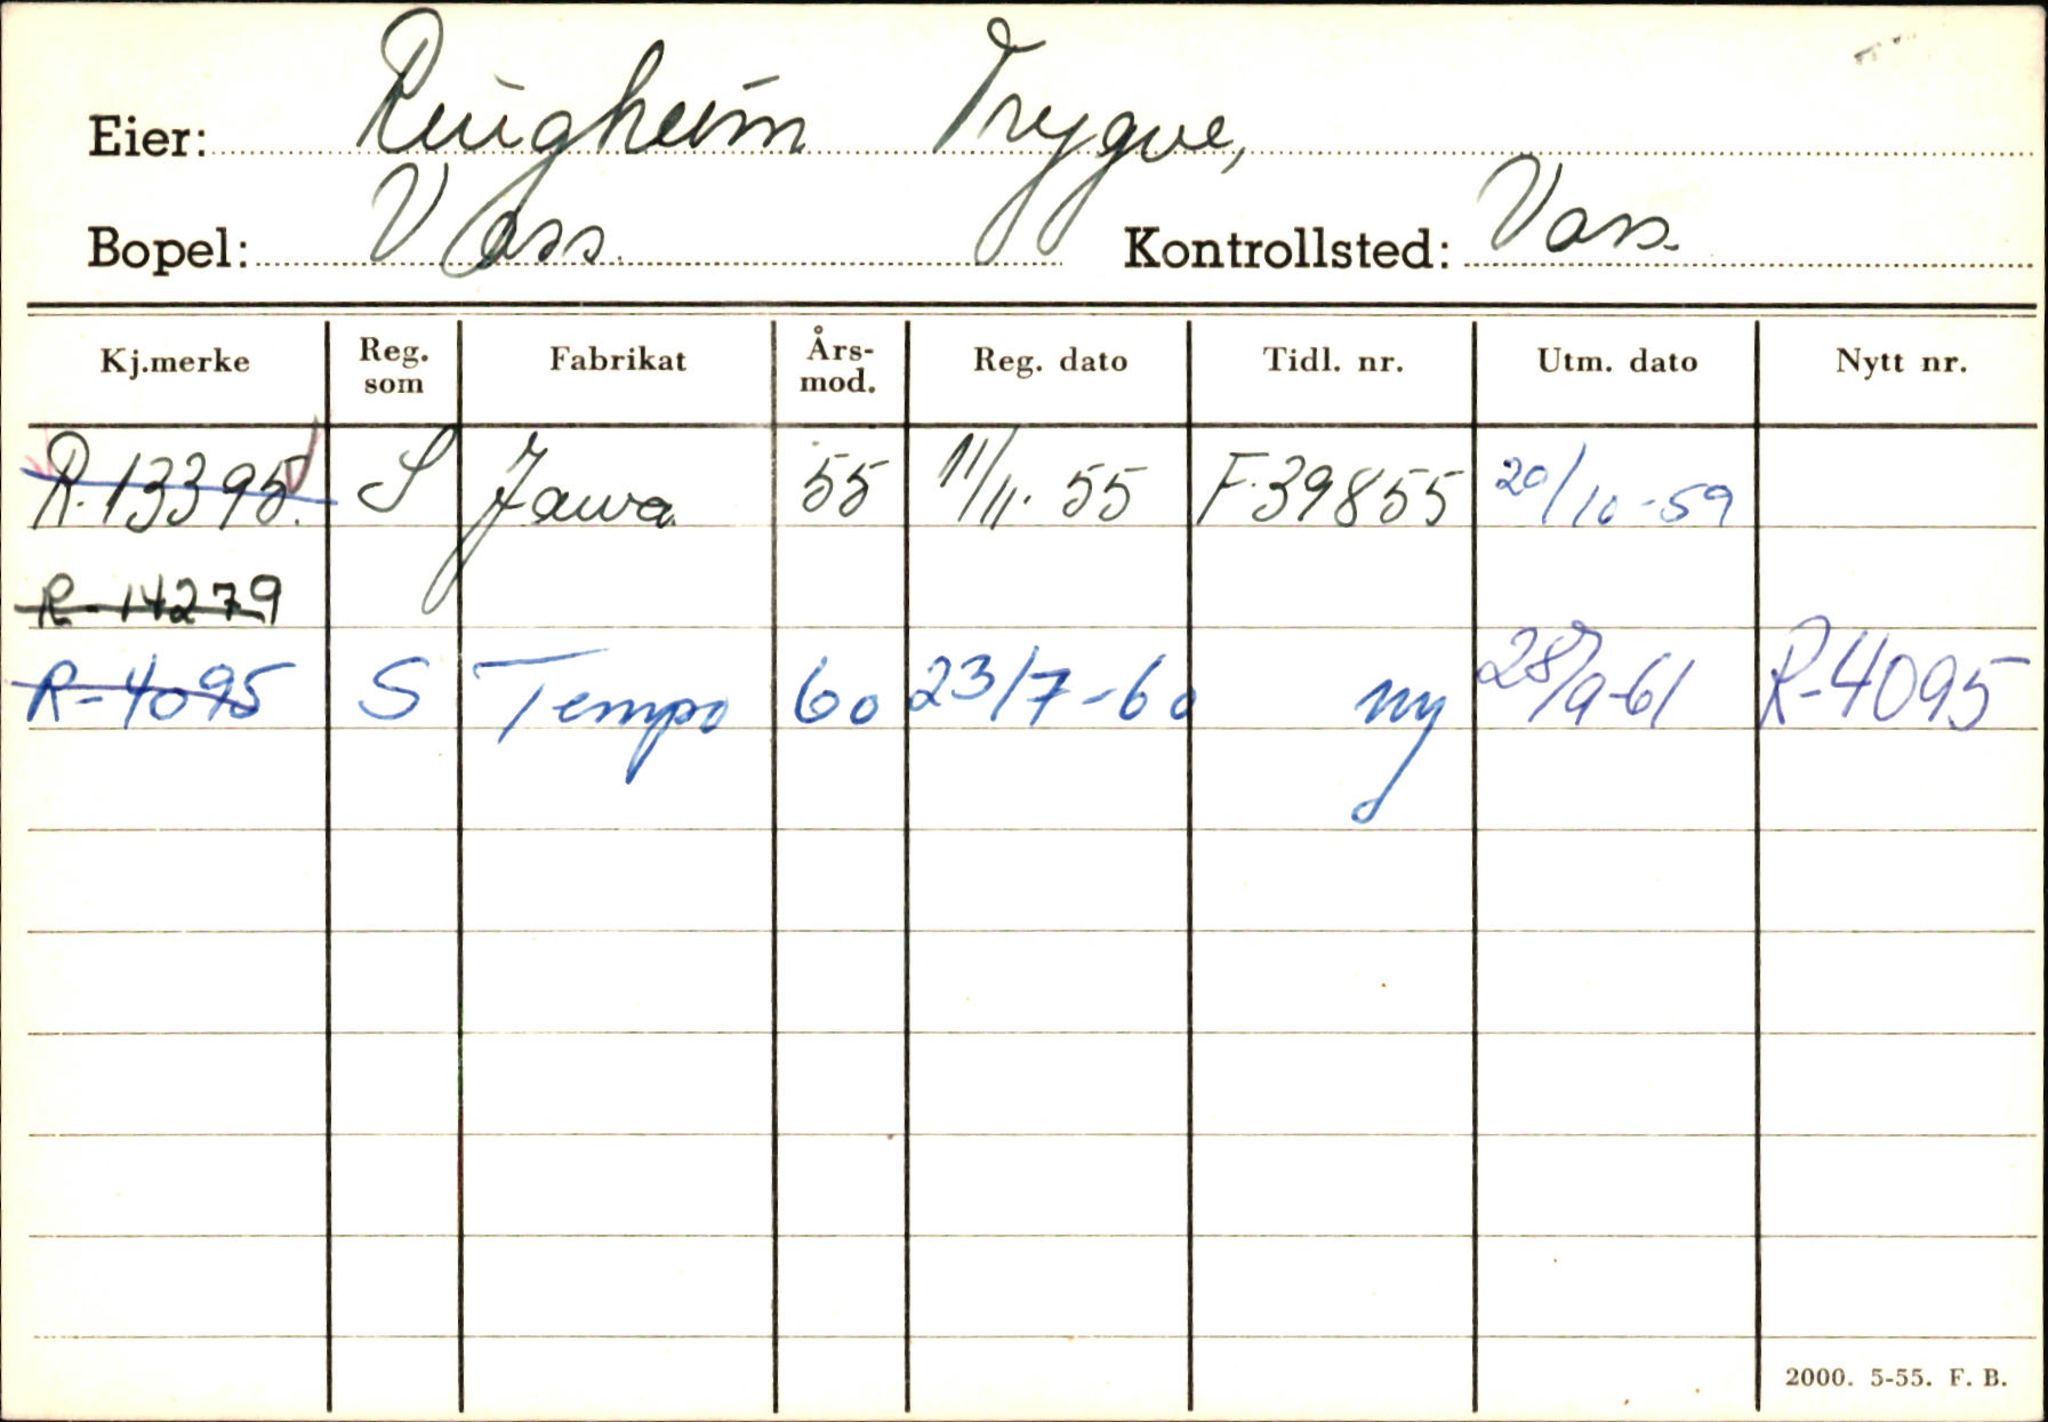 Eier: Ringheim Trygve,
Bopel: Voss. Kontrollsted: Voss.
Kj.merke Reg. som Fabrikat Års- mod. Reg. dato Tidl. nr. Utm. dato Nytt nr.
R.13395. S Jawa. 55 11/11. 55 F.39855 20/10-59
R-14279
R-4095 S Tempo 60 23/7-60 ny 28/9-61 R-4095
2000. 5-55. F. B.